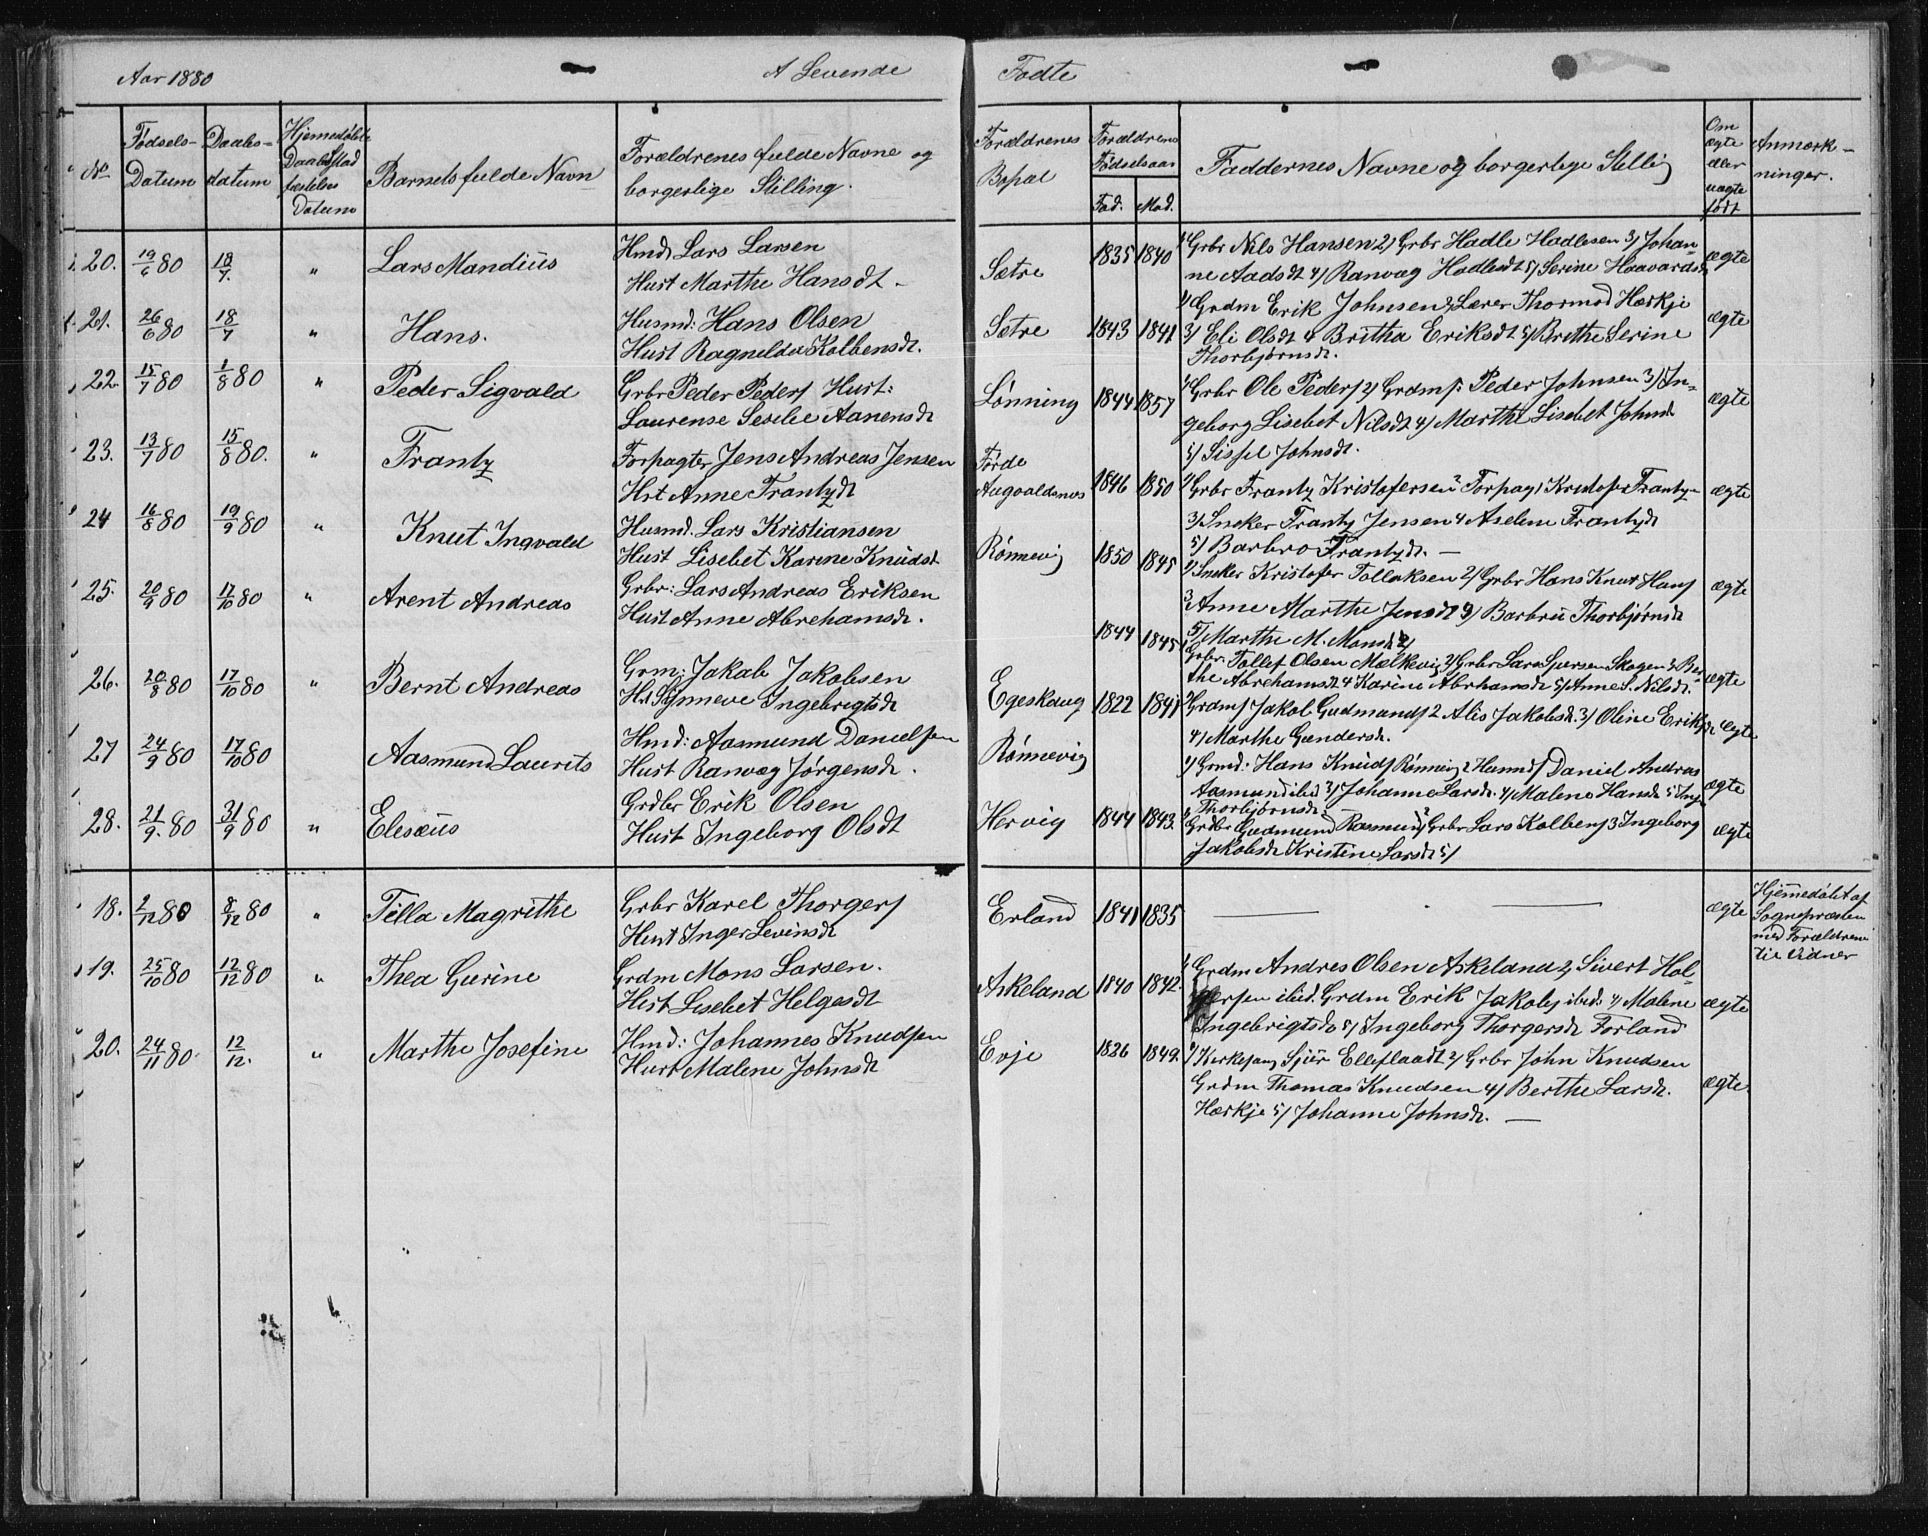 Aar 1880
A Levende
Fødte
No
Fødsels-
Datum
Daabs-
datum
Hjemmedøbte
Daabs Stad
fæstelses
Datum
Barnets fulde Navn
Forældrenes fulde Navne og
borgerlige Stilling.
Forældrenes
Bopæl
Forældrenes
Fødselsaar
Fad. Mod.
Faddernes Navne og borgerlige Stillig
Om
ægte
eller
uægte
født
Anmærk-
ninger.
20. 19/6 80 18/7. " Lars Mandius
Hmd Lars Larsen
Hust Marthe Hansdt -
Sætre 1835 1840
1/ Grbr Nils Hansen 2/ Grbr Hadle Hadlesen 3/ Johan-
ne Aadsdt 4/ Ranvæg Hadlesdt 5/ Serine Haavardsdt
ægte
21. 26/6 80 18/7 " Hans.
Husmd: Hans Olsen
Hust Ragnelda Kolbensdt.
Sætre 1843 1841
1/ Grdm Erik Johnsen 2/ Lærer Thormod Hærkje
3/ Eli Olsdt 4 Britha Eriksdt 5/ Berthe Serine
Thorbjørnsdt.
ægte
22. 15/7 80 1/8 80 " Peder Sigvald
Grbr Peder Peders Hust:
Laurense Seselie Aanensdt
Lønning 1844 1857
1/ Grbr Ole Peders 2/ Grdms: Peder Johnsen 3/ In-
geborg Lisebet Nilsdt 4/ Marthe Lisebet Johnsdt
5/ Sissel Johnsdt.
ægte
23. 13/7 80 15/8 80. " Frantz
Forpagter Jens Andreas Jensen
Hst Anne Frantzdt
Førde
Augvaldsnes 1846 1850
1/ Grbr Frantz Kristofersen 2 Forpag. Kristofer Frantz-
3/ Sneker Frantz Jensen 4 Aseline Frantzdt
5/ Barbro Frantzdt. -
ægte
24 16/8 80 19/9 80 " Knut Ingvald
Husmd. Lars Kristiansen
Hust Lisebet Karine Knudsdt
Rønnevig 1850 1845
1/ Sneker Kristofer Tollaksen 2/ Grbr Hans Knut Hans
3 Anne Marthe Jensdt 4/ Barbru Thorbjørnsdt
5/ Marthe M. Monsdt
ægte
25. 20/9 80 17/10 80 " Arent Andreas
Grbr: Lars Andreas Eriksen
Hust Anne Abrehamsdt.
1844 1845
Grbr. Tollef Olsen Mælkevig 2/ Grbr Lars Sjursen Skogen 3 Ber-
the Abrehamsdt 4 Karine Abrhamsdt 5/ Anne S. Nilsdt.
ægte
26. 20/8 80 17/10 80 " Bernt Andreas
Grm: Jakab Jakobsen
Hst Synneve Ingebrigtsdt
Egeskoug 1822 1841
Grdms Jakob Gudmands 2 Alis Jakobsdt. 3/ Oline Eriksdt
4/ Marthe Gundersdt.
ægte
27 24/9 80 17/10 80 Aasmund Laurits
Hmd: Aasmund Danielsen
Hust Ranvæg Jørgensdt.
Rønnevig
1/ Grmd: Hans Knuds Rønnevig 2 Husmd Daniel Andreas
Aasmund ibid 3/ Johanne Larsdt. 4/ Malene Hansdt 5
Thorbjørnsdt
ægte
28. 21/9. 80 31/9 80 " Eleseus
Grdbr Erik Olsen
Hust Ingeborg Olsdt
Hervig 1844 1843.
Grdbr Gudmund Rasmus 2/ Grbr Lars Kolbens 3 Ingeborg
Jakobsdt Kristine Larsdt 5/
ægte
18. 2/12 80 8/12 80 " Tilla Magrithe
Grbr Karel Thorgers
Hust Inger Levinsdt
Erland 1841 1835
ægte
Hjemmedøbt af
Sognepræsten
med Forældrene
til Vidner
19. 25/10 80 12/12 80 " Thea Gurine
Grdm Mons Larsen.
Hist Lisebet Helgesdt
Askeland 1840 1842.
1/ Grdm Andres Olsen Askeland 2/ Sivert Hol-
gersen ibid. Grdm Erik Jakobs ibid. 4/ Malene
Ingebrigtsdt 5/ Ingeborg Thorgersdt Førland
ægte
20. 24/11 80. 12/12. " Marthe Josefine
Hmd: Johannes Knudsen
Hust Malene Johnsdt
Evje 1826 1849.
1/ Kirkesang Sjur Elleflaadt 2/ Grbr John Knudsen
Grdm Thomas Knudsen 4/ Berthe Larsdt.
Hærkje 5/ Johanne Johnsdt. -
ægte.